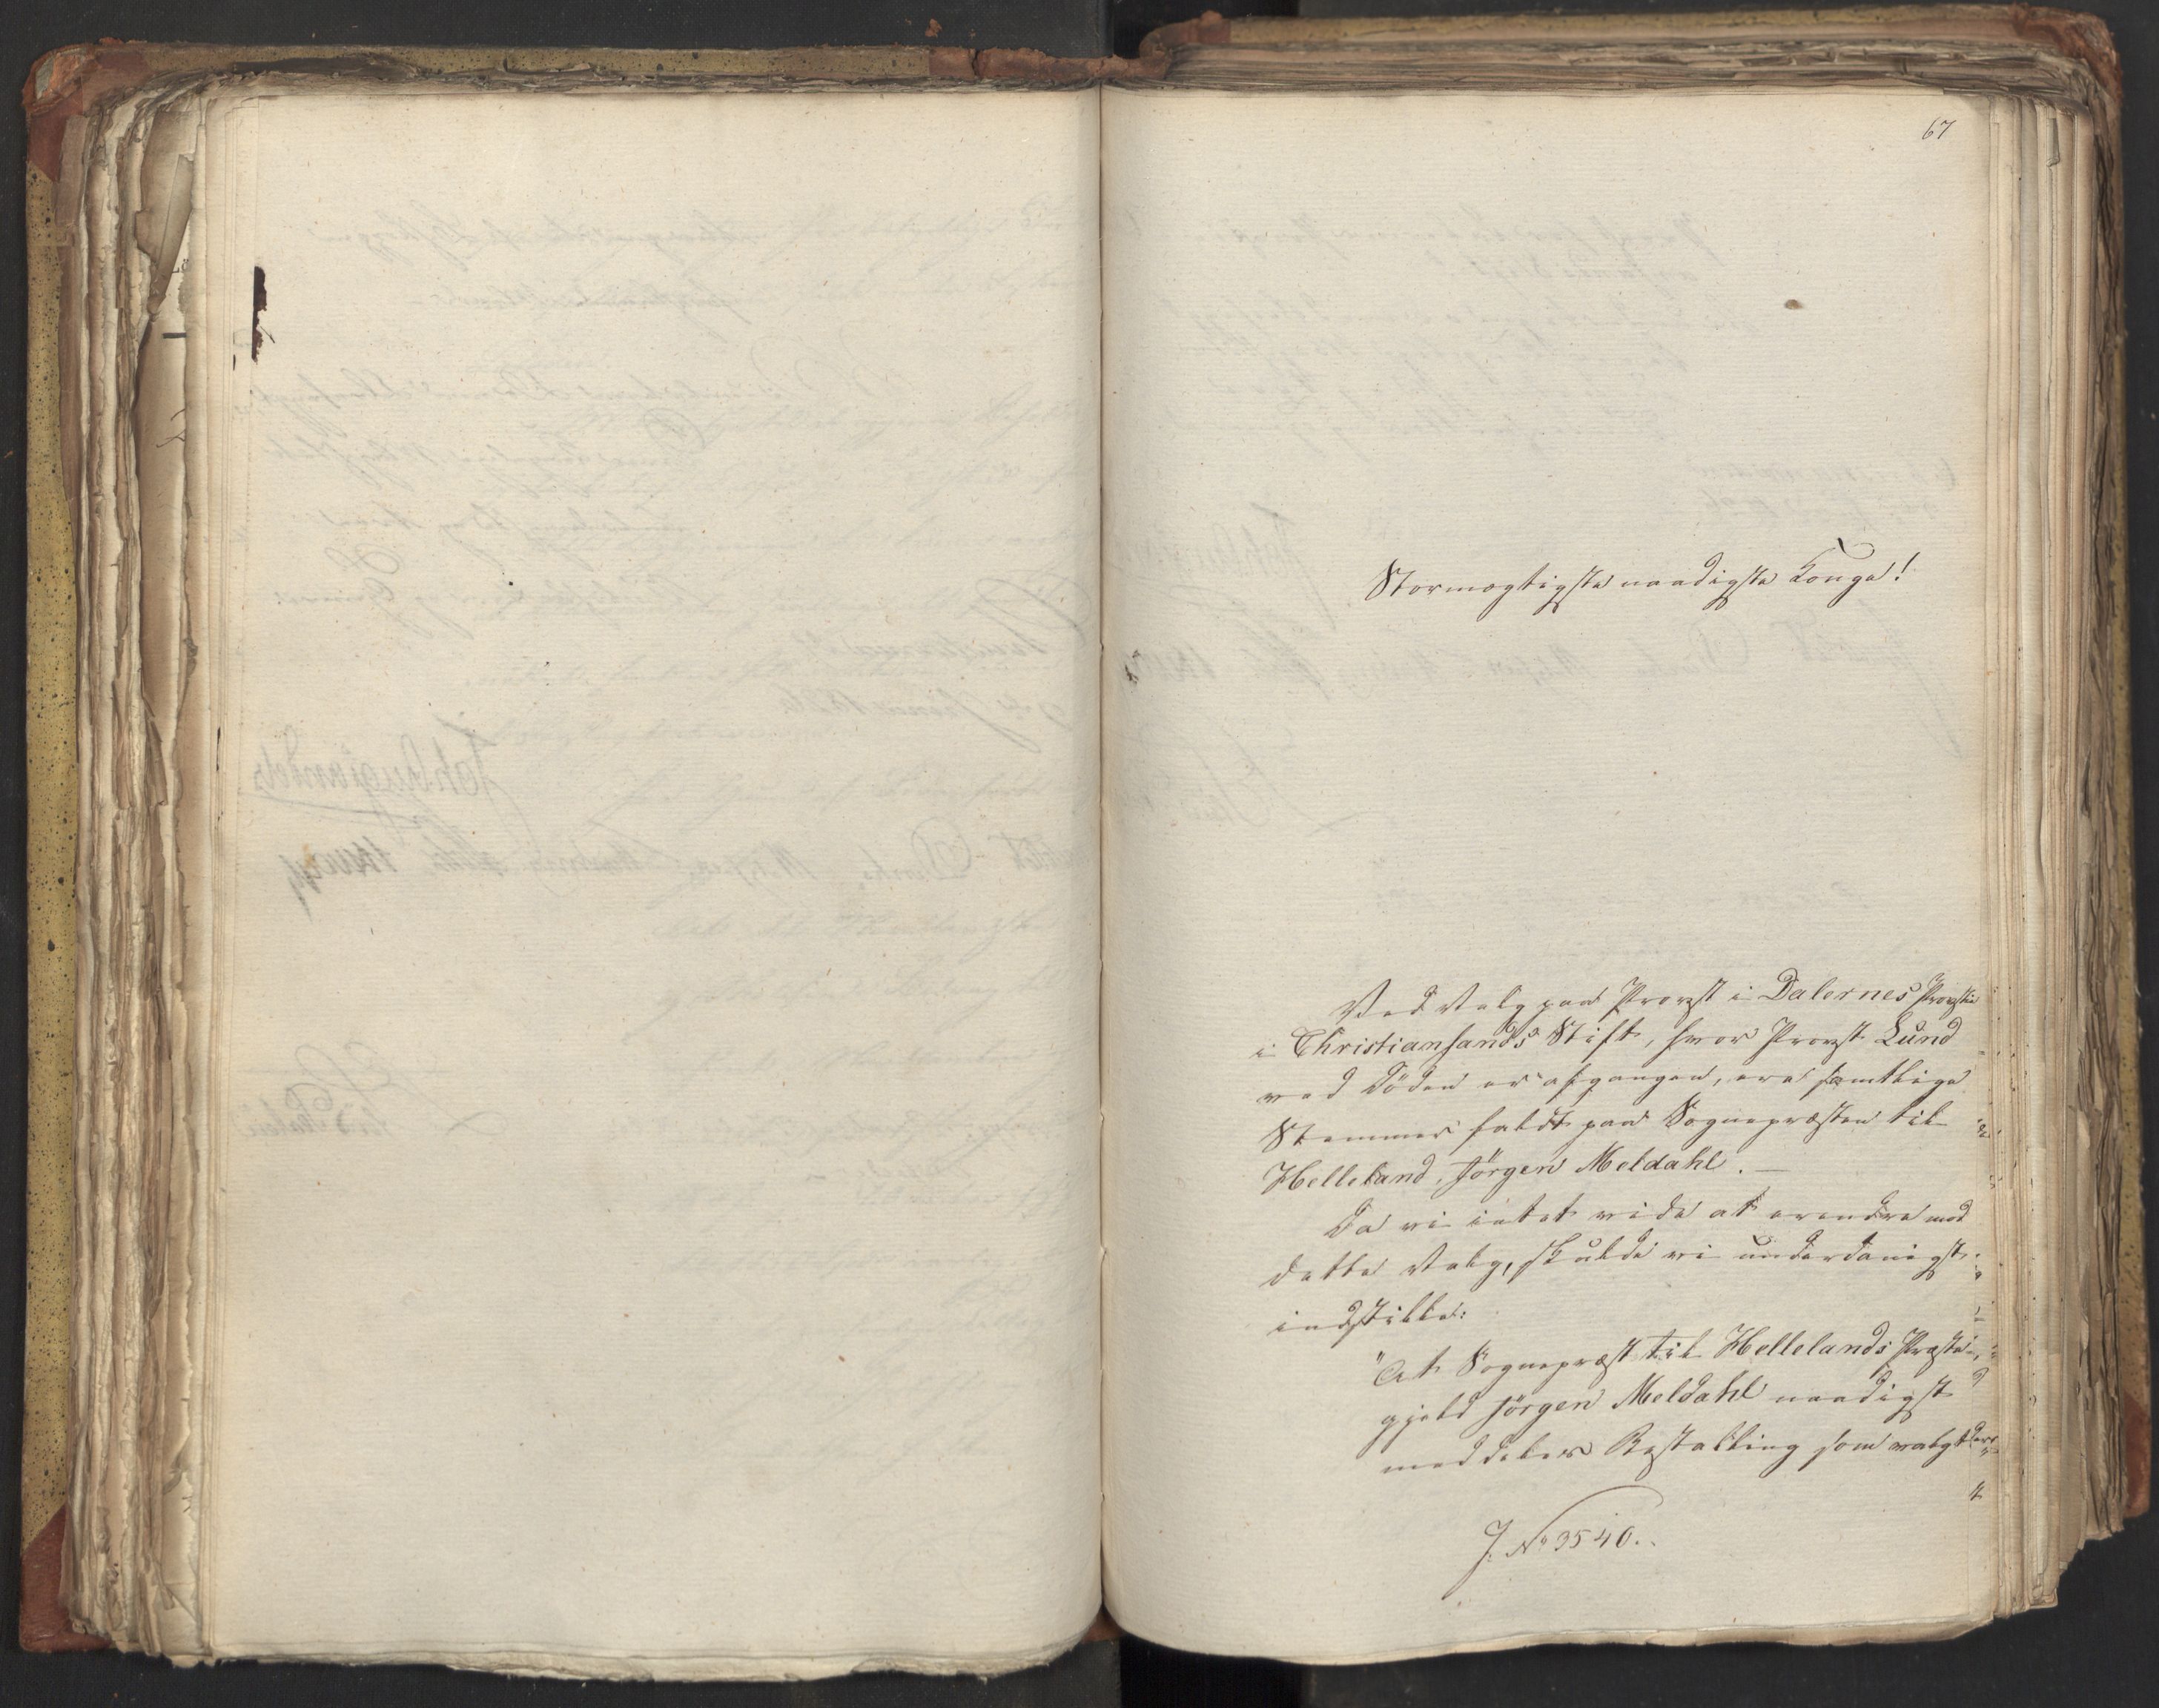 67
Stormægtigste naadigste Konge!
Ved Valg paa Provst i Dalernes Provstie
i Christiansands Stift, hvor Provst Lund
ved Döden er afgangen, ere samtlige
Stemmer faldt paa Sognepræsten til
Helleland, Jörgen Meldahl.—
Da vi intet vide at erendre mod
dette Valg, skulde vi underdanigst
indstille:
"At Sognepræst til Hellelands Præste-
gjeld Jörgen Meldahl naadigst
meddeles Bestalling som valgt
J. No 3540..